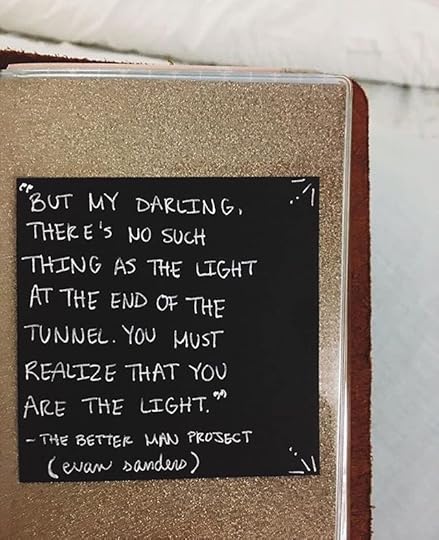 "BUT MY DARLING,
THERE'S NO SUCH
THING AS THE LIGHT
AT THE END OF THE
TUNNEL. YOU MUST
REALIZE THAT YOU
ARE THE LIGHT."
- THE BETTER MAN PROJECT
(evan sanders)